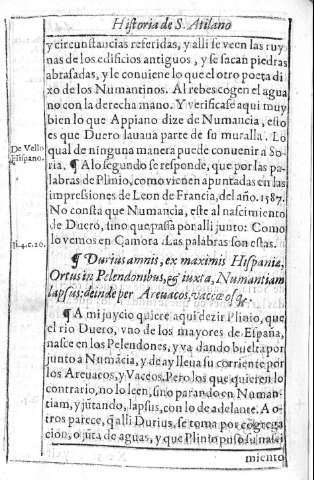 Historia de S. Atilano
y circunstancias referidas, y alli se veen las ruy
nas de los edificios antiguos, y se sacan piedras
abrasadas, y le conuiene lo que el otro poeta di
xo de los Numantinos. Al rebes cogen el agua
no con la derecha mano. Y verificase aqui muy
bien lo que Appiano dize de Numancia, esto
es que Duero lauaua parte de su muralla. Lo
De Vello
Hispano.
qual de ninguna manera puede conuenir a So-
ria. ¶ A lo segundo se responde, que por las pa-
labras de Plinio, como vienen apuntadas en las
impressiones de Leon de Francia, del año. 1587.
No consta que Numancia, este al nascimiento
de Duero, sino que passa por alli junto: Como
li.4.c.20.
lo vemos en Çamora. Las palabras son estas.
¶ Durius amnis, ex maximis Hispania,
Ortus in Pelendonibus, & iuxta, Numantiam
lapsus: deinde per Areuacos, vacceosq;
¶ A mi juycio quiere aqui dezir Plinio, que
el rio Duero, vno de los mayores de España,
nasce en los Pelendones, y va dando buelta por
junto a Numãcia, y de ay lleua su corriente por
los Areuacos, y Vaceos. Pero los que quieren lo
contrario, no lo leen, sino parando en Numan-
tiam, y jũtando, lapsus, con lo de adelante. A o-
tros parece, q̃ alli Durius, se toma por cõgrega
cion, o jũta de aguas, y que Plinio puso su nasci
miento